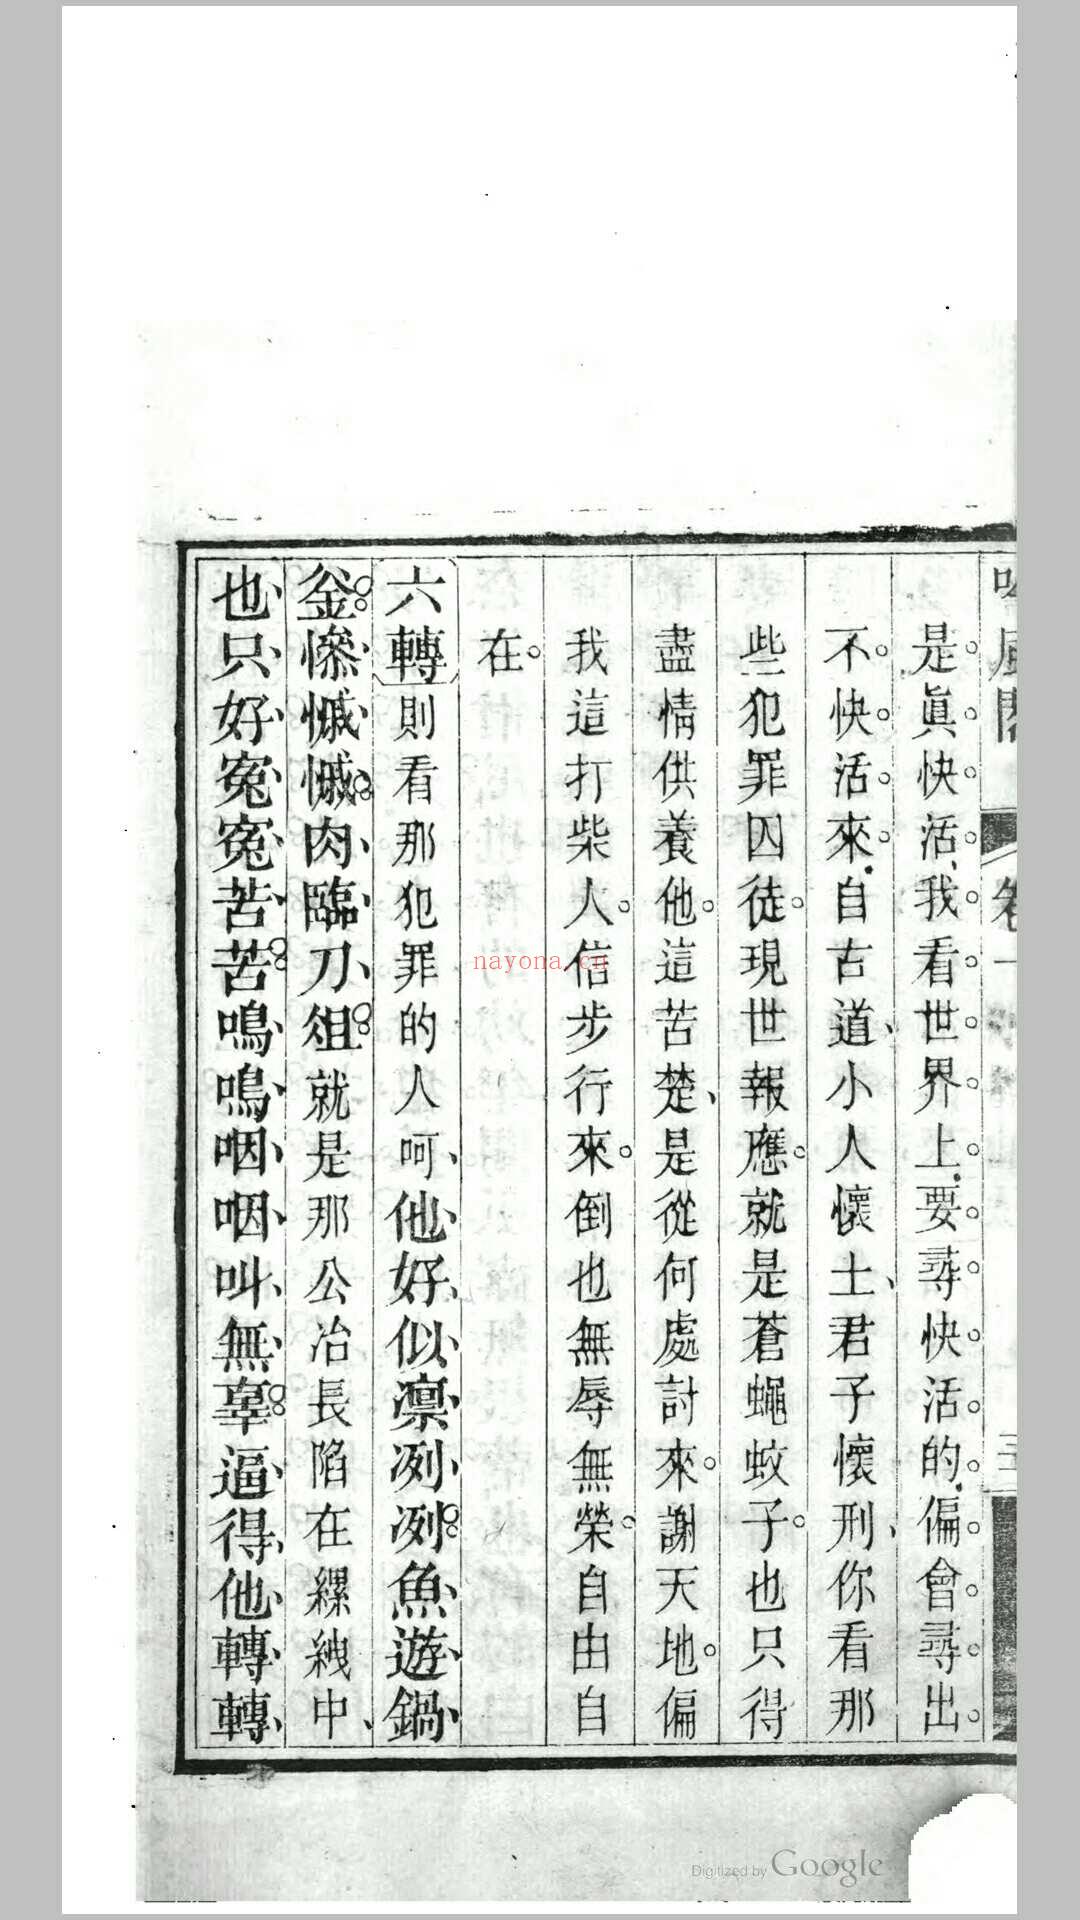 是眞快活我看世界上要尋快活的偏會尋出
不快活來自古道小人懷土君子懷刑你看那
些犯罪囚徒現世報應就是蒼蠅蚊子也只得
盡情供養他這苦楚是從何處討來謝天地偏
我這打柴人信步行來倒也無辱無榮自由自
在
六轉則看那犯罪的人呵他好似凛冽冽魚遊鍋
釜慘慽慽肉臨刀俎就是那公冶長陷在縲絏中
也只好寃寃苦苦鳴鳴咽咽叫無辜逼得他轉轉
nayona.cn
Digitized by Google